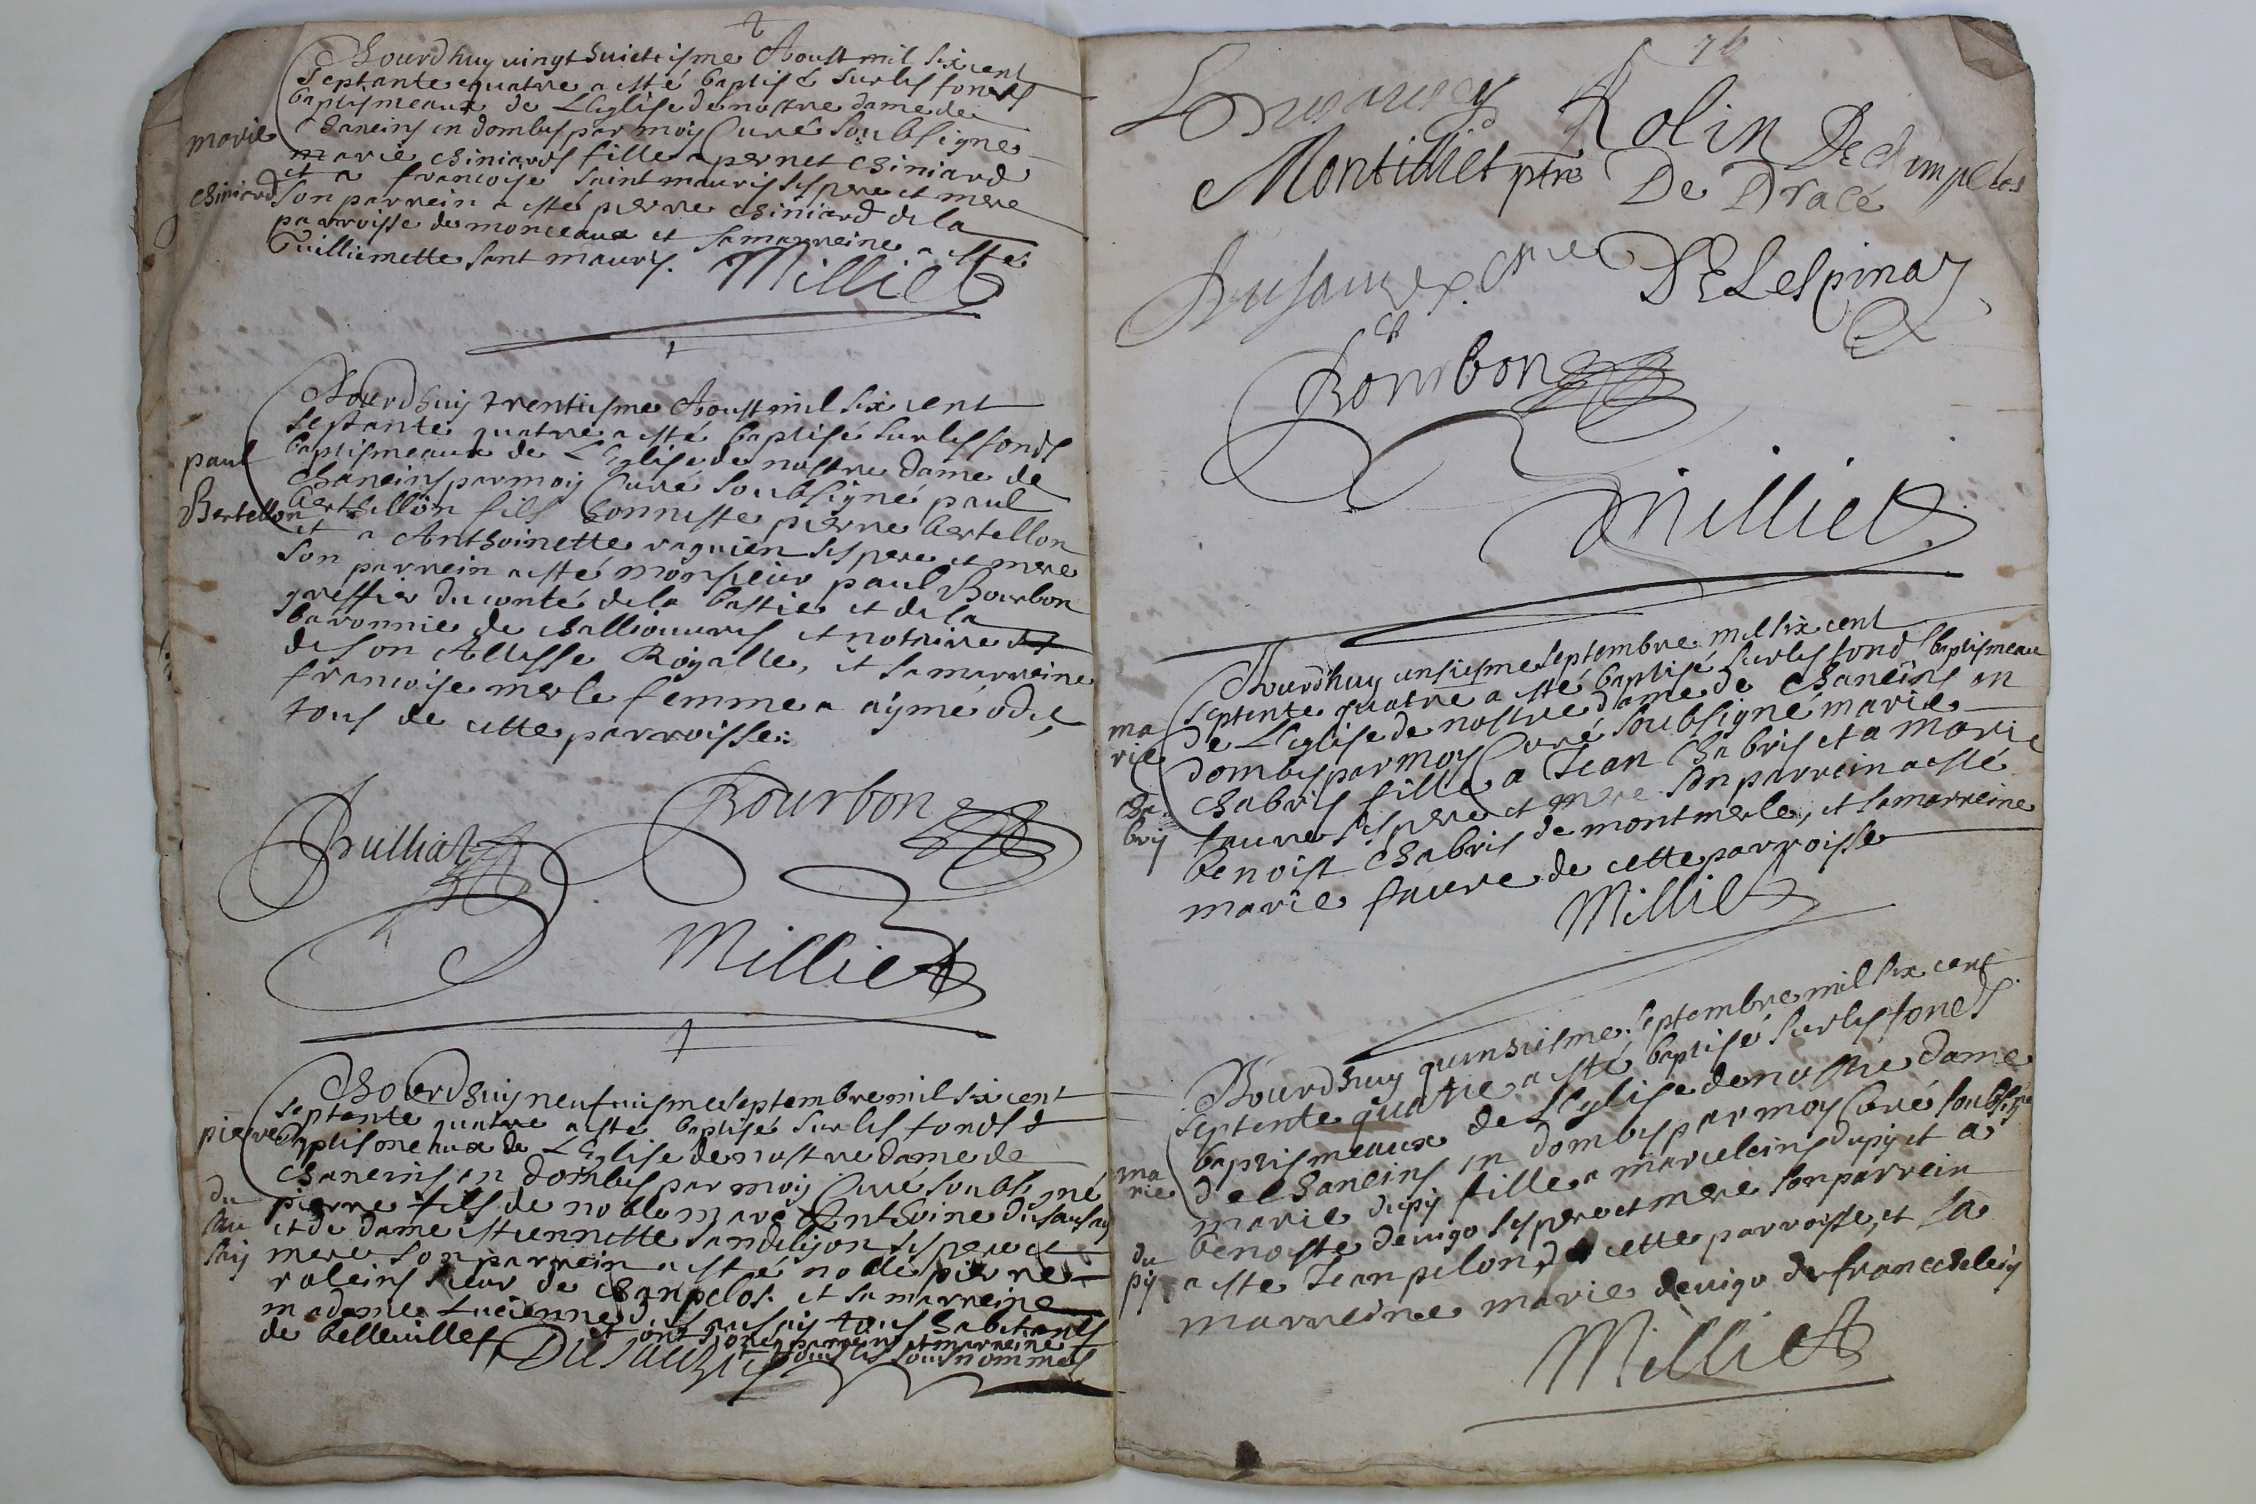 Aiourdhuy vingt huictiesme Aoust mil six cent
septante quatre a esté baptisé sur les fonds
baptismeaux de L'Eglise de nostre dame de
Chaneins en dombes par moy Curé soubsigné
marie
marie chiniard fille a pernet chiniard
et a francoise saint mauris ses pere et mere
chiniard
son parrein a este pierre chiniard de la
parroisse de monceaux et sa marreine a esté
Guilliemette sant mauris.
Milliet
Aiourdhuy trentiesme Aoust mil six cent
septante quatre a esté baptisé sur les fonds
baptismeaux de L'Eglise de nostre dame de
paul
Chaneins par moy Curé soubsigné paul
Bertellon
berthellon fils honneste pierre bertellon
et a Anthoinette raguien ses pere et mere
son parrein a esté monsieur paul Bourbon
greffier du conté de la bastie et de la
baronnie de challiouvres et notaire
de son Altesse Royalle, et sa marreine
francoise merle femme a aymé odet
tous de cette parroisse
Brulliat
Bourbon
Milliet
Aiourdhuy neufuiesme septembre mil six cent
septante quatre a esté baptisé sur les fonds
pierre
baptismeaux de L'Eglise de nostre dame de
Chaneins en dombes par moy Curé soubsigné
du
pierre fils de noble marc Anthoine du sausay
sau
et de dame estiennette sandilion ses pere et
say
mere son parrein a esté noble pierre
roleins sieur de champelos et sa marreine
madame Lucienne du sausay tous habitants
de belleville
et ont signé parrein et marreine
tous les sousnommés
Dusauzey
76
Rolin De champelos
Montilliet ptre De Dracé
Dusauzex
DE Lespinay
Bourbon
Milliet
Aiourdhuy unsiesme septembre mil six cent
septente quatre a esté baptisé sur les fonds baptismeau
de L'Eglise de nostre dame de Chaneins en
ma
rie
dombes par moy Curé soubsigné marie
chabris fille a Jean Chabris et a marie
cha
faure ses pere et mere son parrein a esté
bris
benoist Chabris de montmerle, et sa marreine
marie faure de cette parroisse
Milliet
Aiourdhuy quinsiesme septembre mil six cent
septente quatre a esté baptisé sur les fonds
baptismeaux de L'Eglise de nostre dame
de Chaneins en dombes par moy Curé soubsigné
ma
rie
marie dupy fille a marceleins dupy et a
benoiste devigo ses pere et mere son parrein
du
py
a este Jean pelon de cette parroisse, et sa
marreine marie devigo de francheleins
Milliet